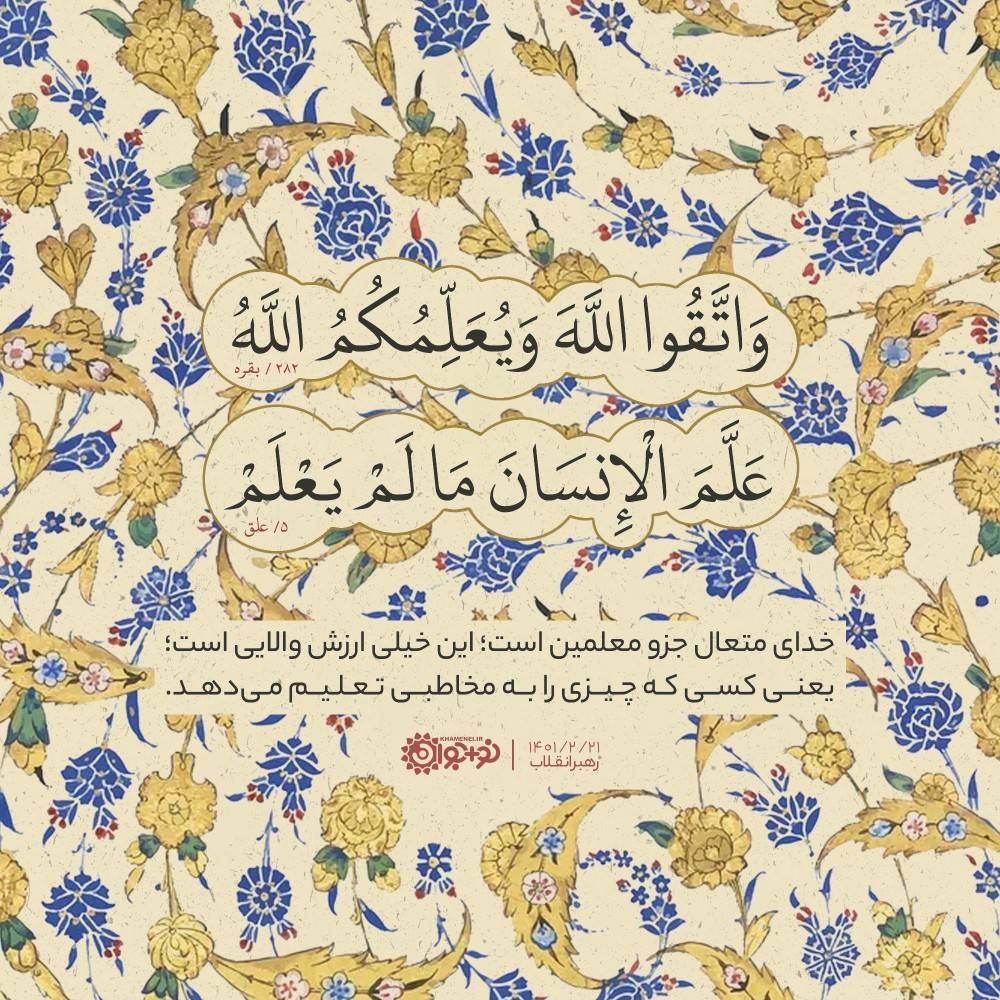 وَاتَّقُوا اللَّهَ وَيُعَلِّمُكُمُ اللَّهُ
۲۸۲ / بقره
عَلَّمَ الْإِنسَانَ مَا لَمْ يَعْلَمْ
۵/ علق
خدای متعال جزو معلمین است؛ این خیلی ارزش والایی است؛
یعنی کسی که چیزی را به مخاطبی تعلیم می‌دهد.
۱۴۰۱/۲/۲۱
رهبرانقلاب
KHAMENEI.IR
نوجوان